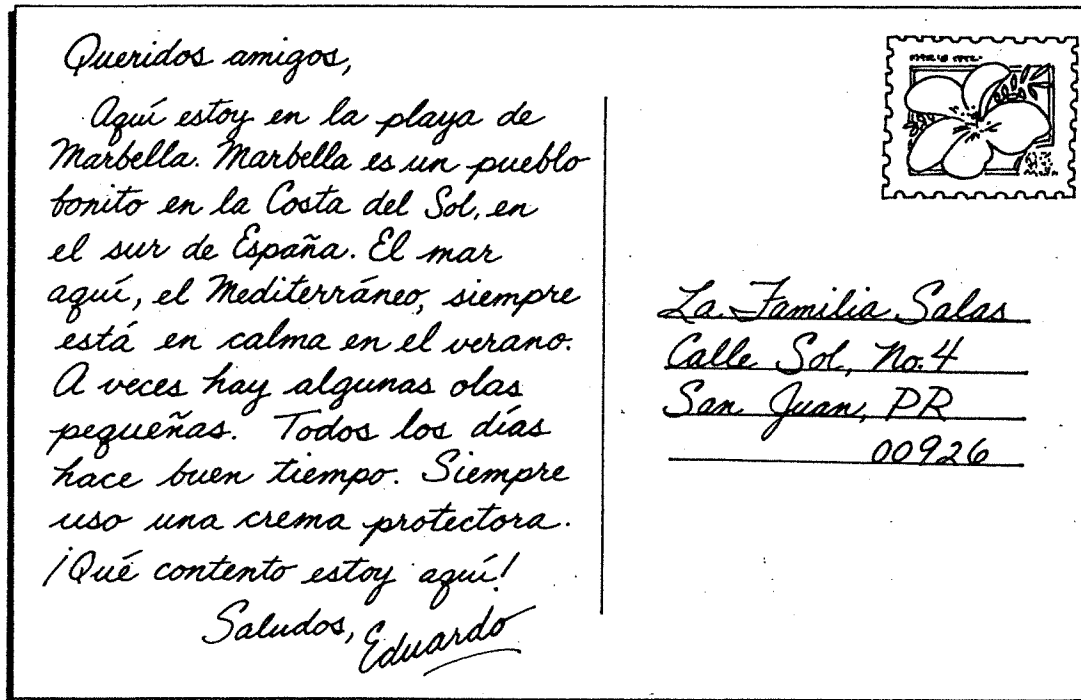 Queridos amigos,
Aquí estoy en la playa de
Marbella. Marbella es un pueblo
bonito en la Costa del Sol, en
el sur de España. El mar
aquí, el Mediterráneo, siempre
está en calma en el verano.
A veces hay algunas olas
pequeñas. Todos los días
hace buen tiempo. Siempre
uso una crema protectora.
¡Qué contento estoy aquí!
Saludos, Eduardo
La Familia Salas
Calle Sol, No. 4
San Juan, PR
00926